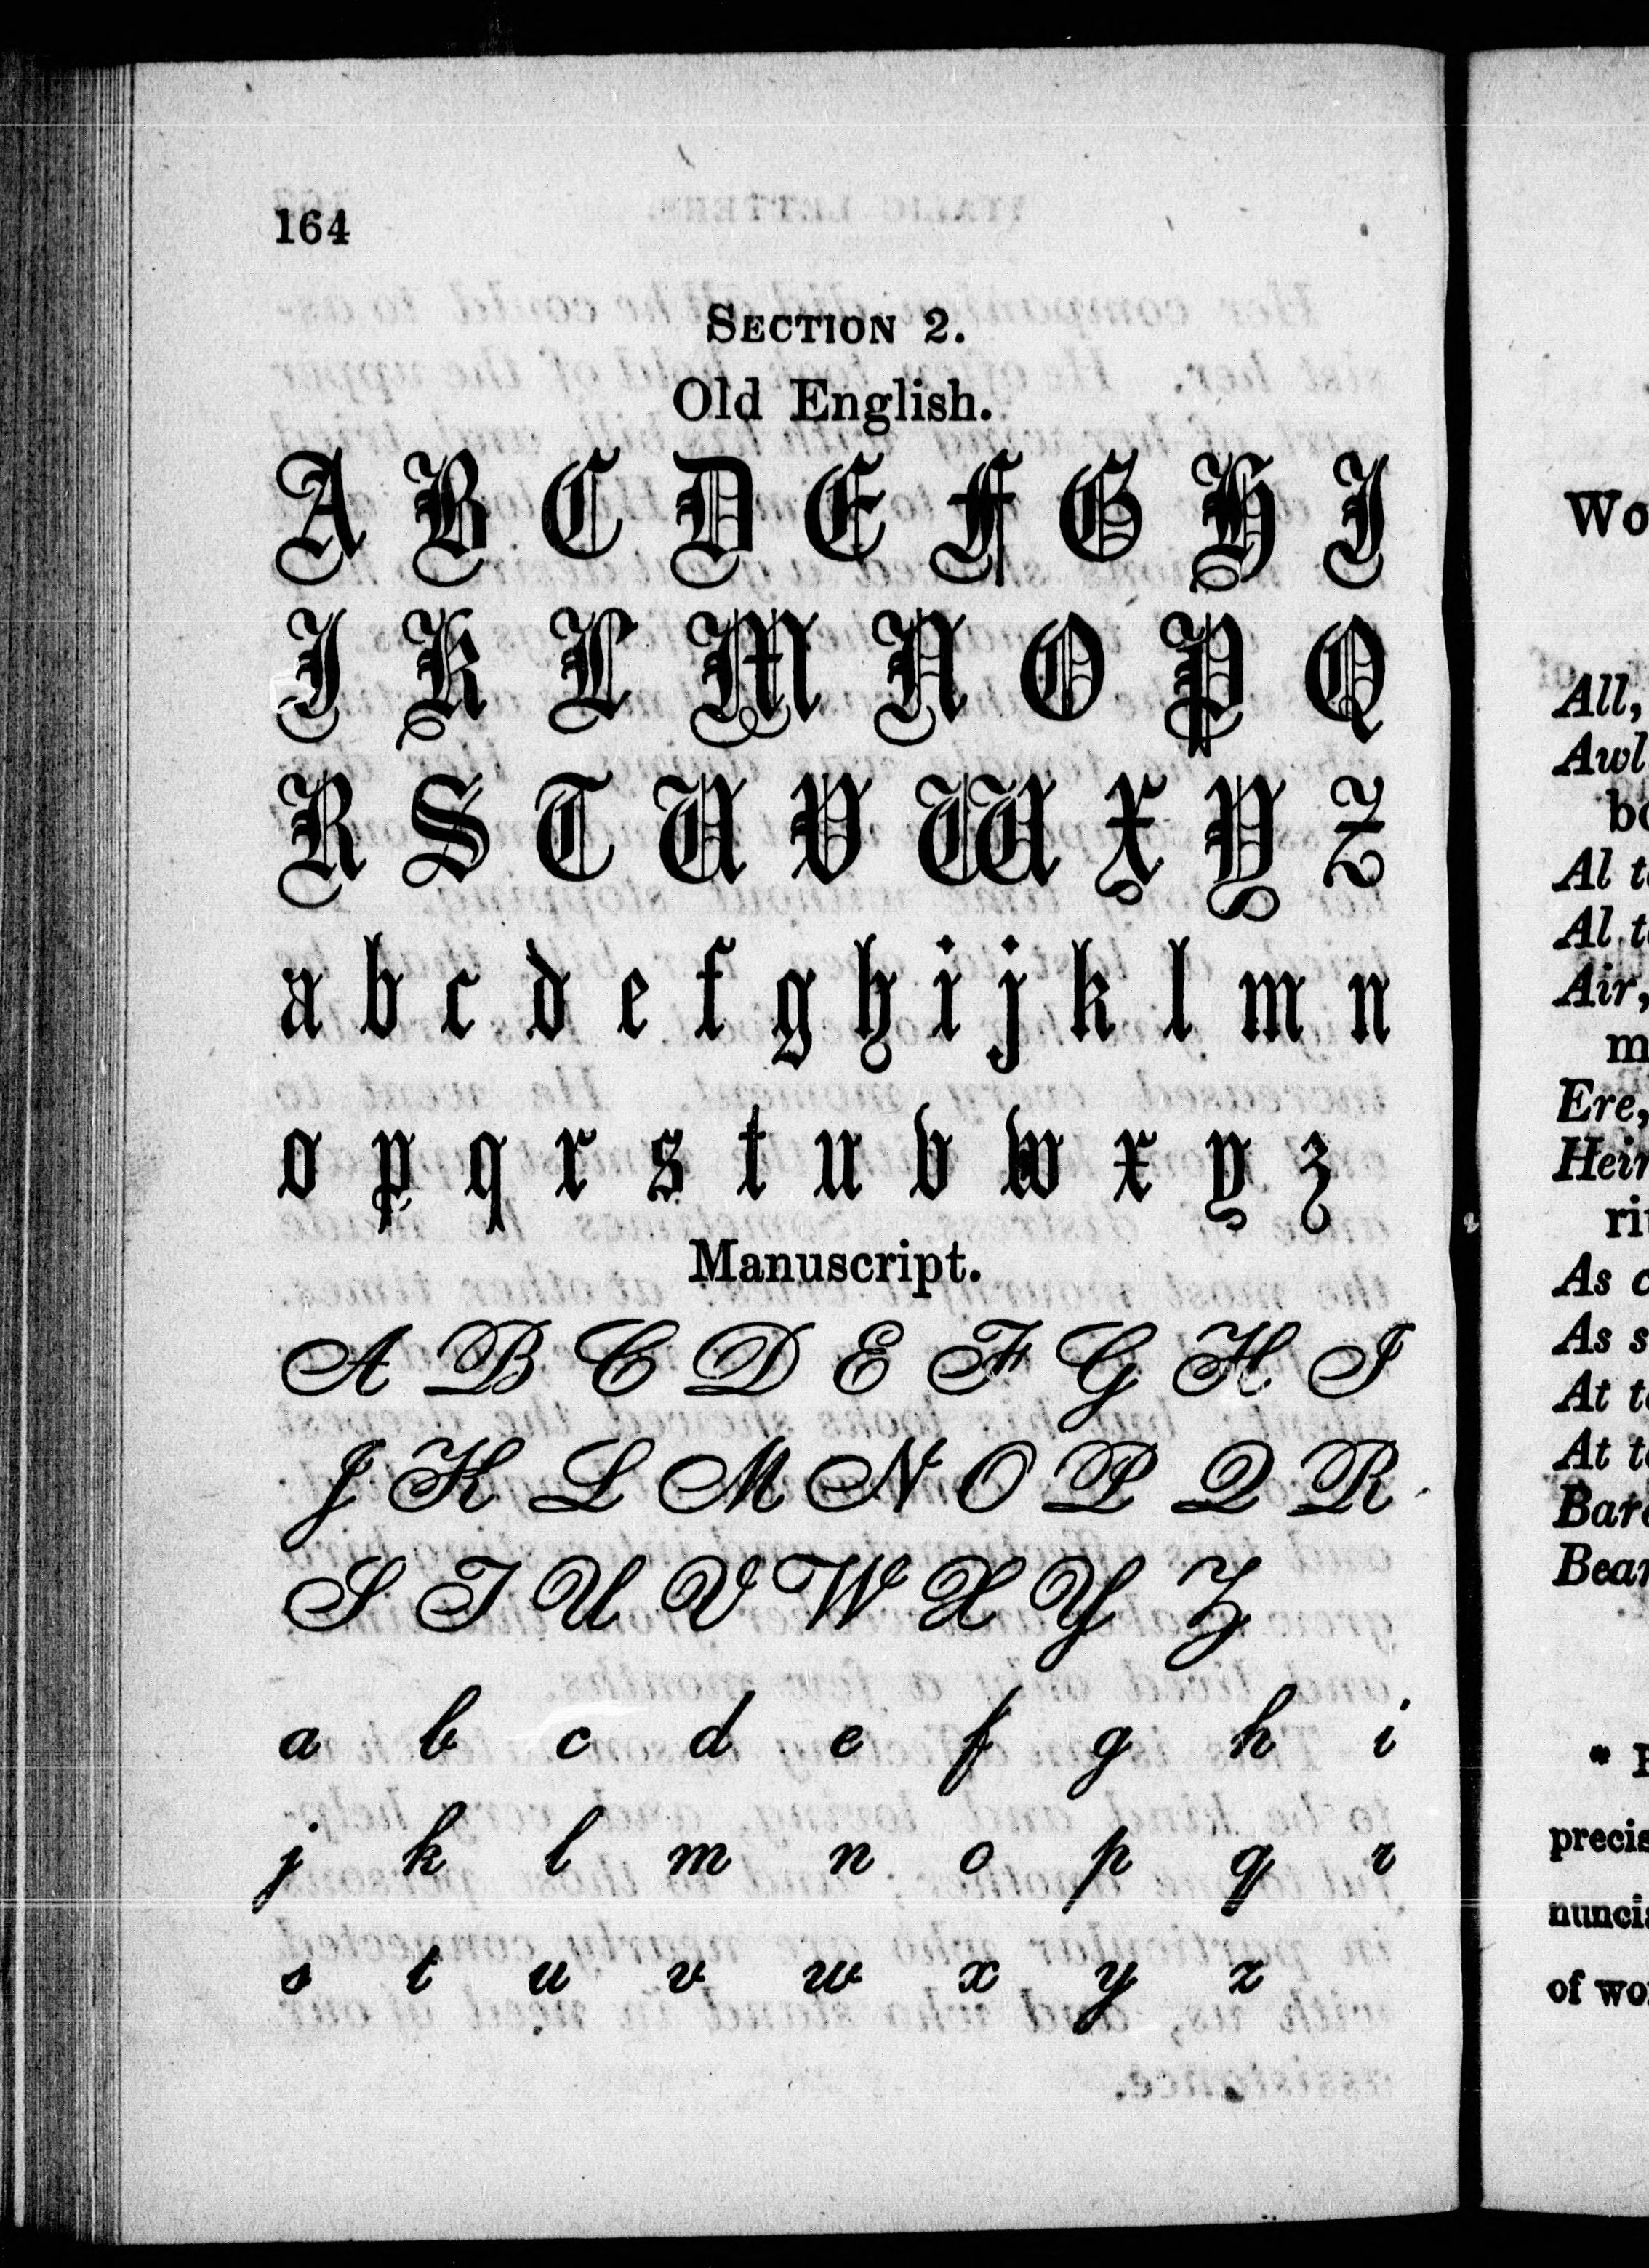 164
SECTION 2.
Old English.
A B C D E F G H I
J K L M N O P Q
R S T U V W X Y Z
a b c d e f g h i j k l m n
o p q r s t u v w x y z
Manuscript.
A B C D E F G H I
J K L M N O P Q R
S T U V W X Y Z
a b c d e f g h i
j k l m n o p q r
s t u v w x y z
All,
Awl
Al
Al
Air,
Ere,
As
As
At
At
precis
nuncia
of